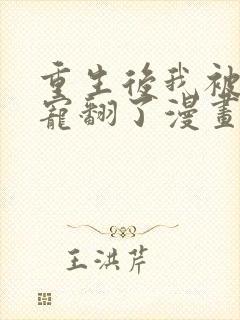 重生後我被
寵翻了漫畫
王洪芹